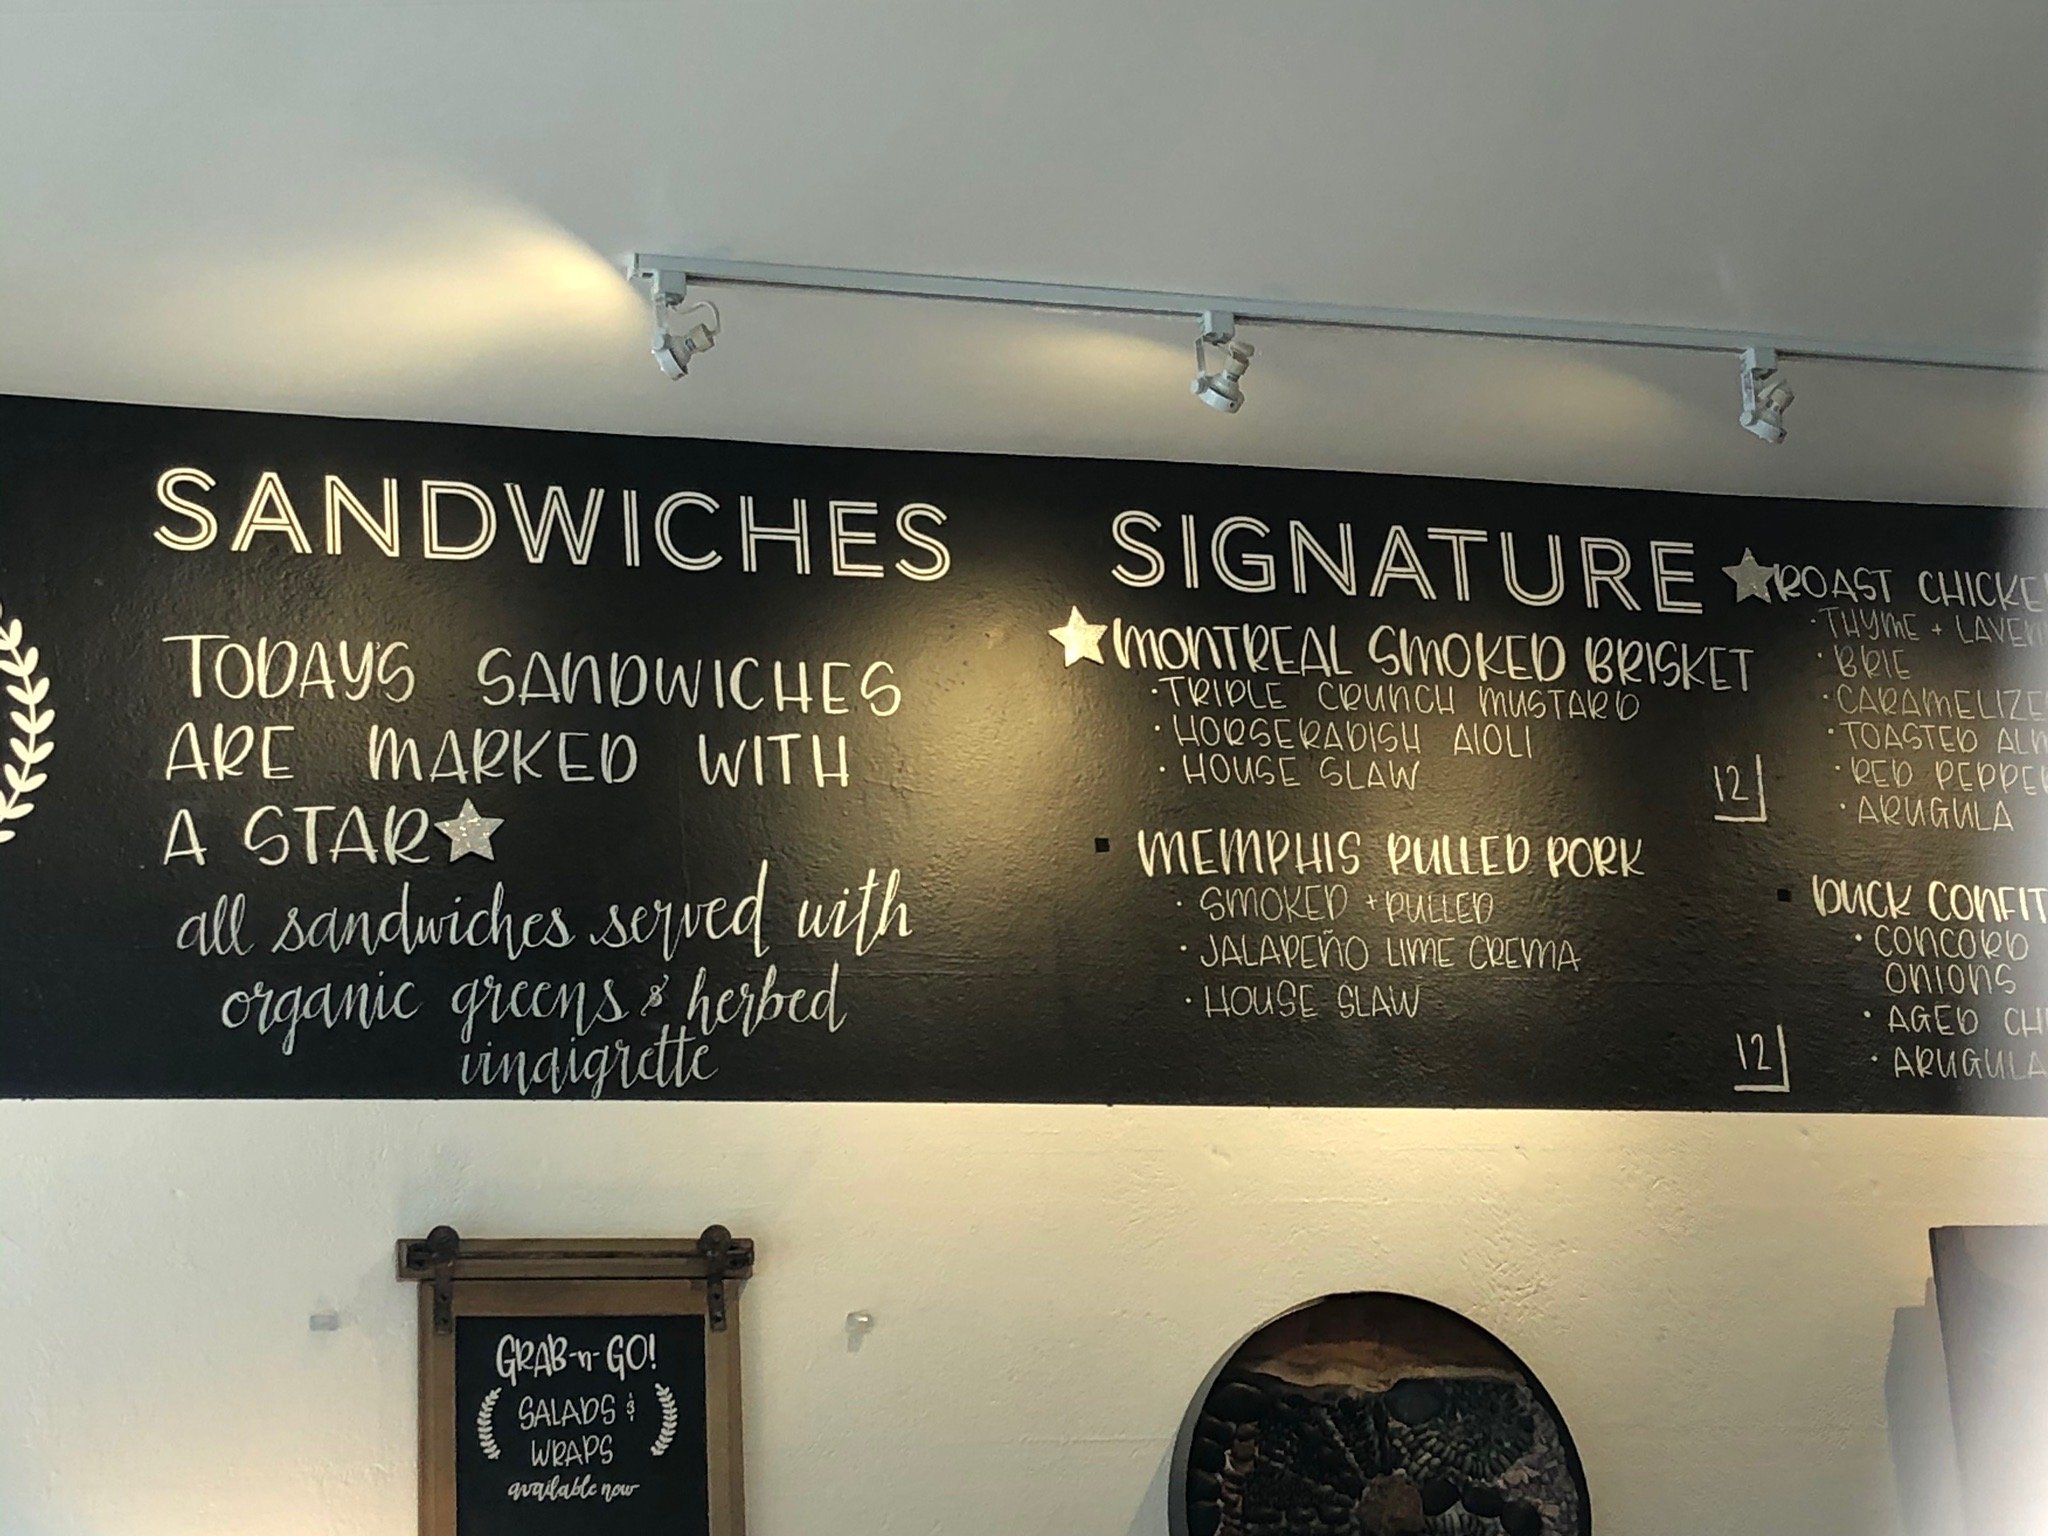 SANDWICHES
TODAY'S SANDWICHES
ARE MARKED WITH
A STAR
all sandwiches served with
organic greens & herbed
vinaigrette
SIGNATURE
MONTREAL SMOKED BRISKET
· TRIPLE CRUNCH MUSTARD
· HORSERADISH AIOLI
· HOUSE SLAW
12
MEMPHIS PULLED PORK
· SMOKED + PULLED
· JALAPEÑO LIME CREMA
· HOUSE SLAW
12
ROAST
· THYME +
· BRIE
·
· TOASTED
· RED
· ARUGULA
DUCK CONFIT
· CONCORD
ONIONS
· AGED
· ARUGULA
GRAB-n-GO!
SALADS &
WRAPS
available now